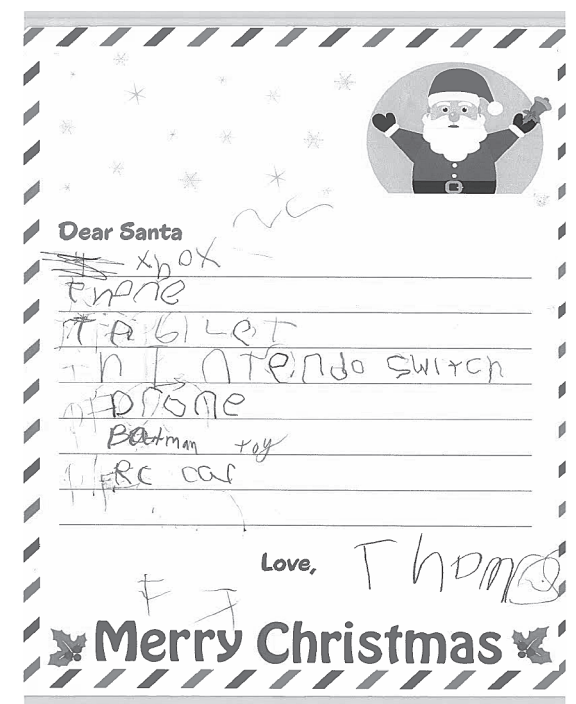 Dear Santa
xbox
Phone
TaBlet
nintendo switch
Drone
Batman toy
Rc car
Love, Thomas
F J
Merry Christmas